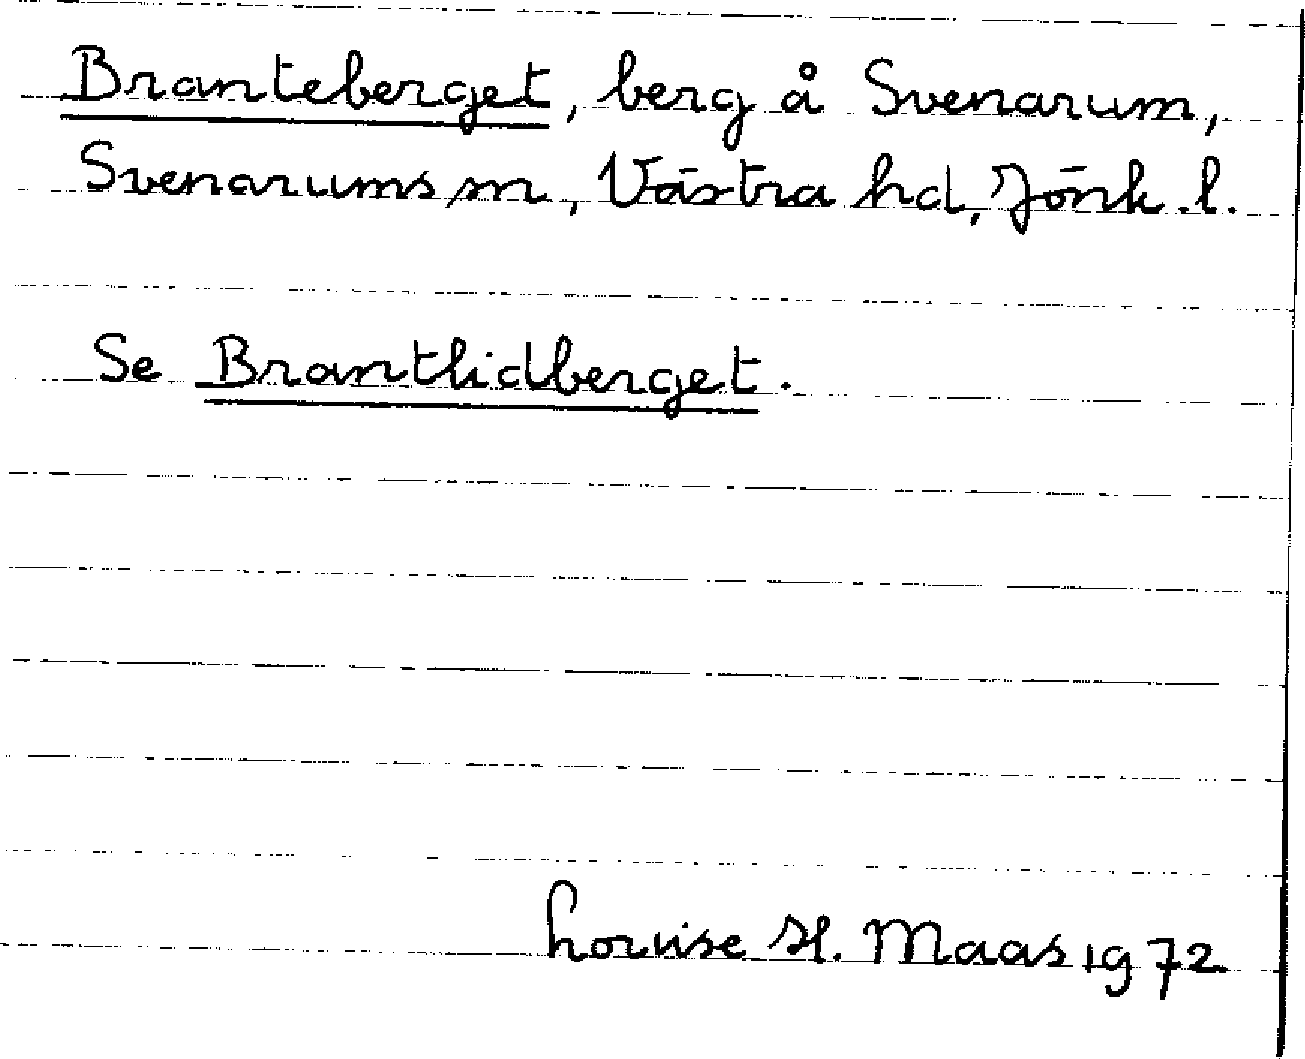 Branteberget, berg å Svenarum,
Svenarums sn, Västra hd, Jönk. l.
Se Brantlidberget.
Louise H. Maas 1972